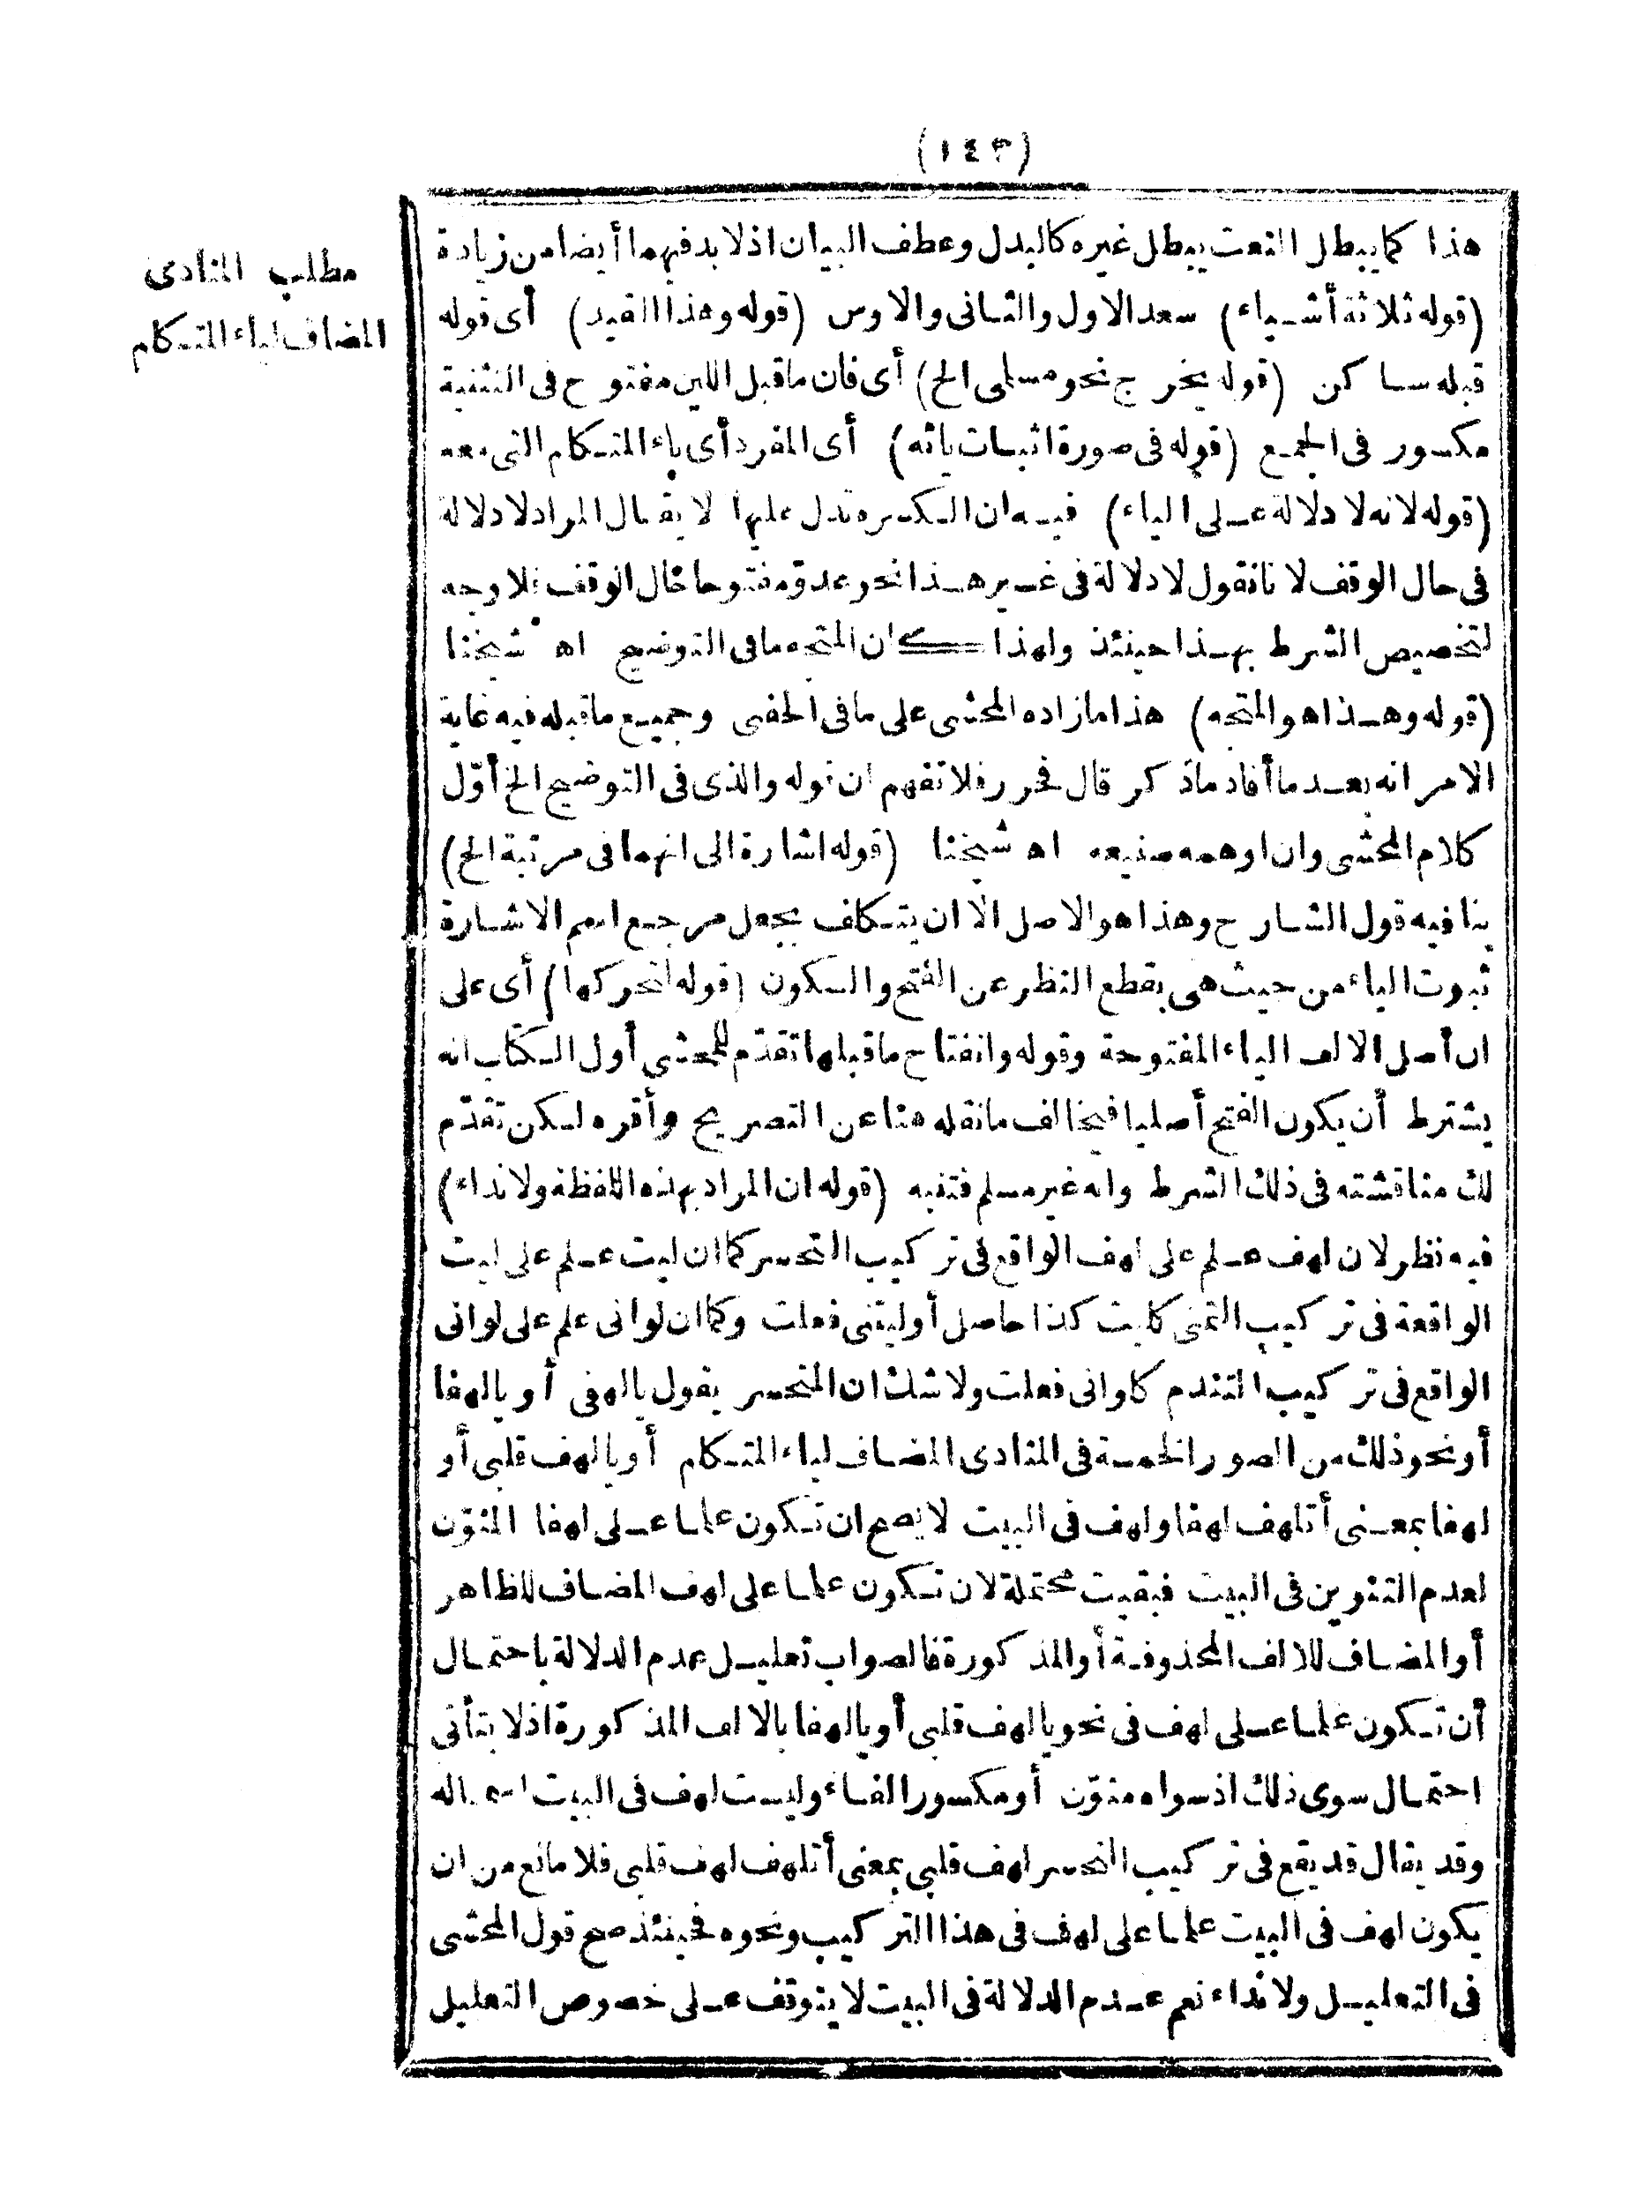 (١٤٣)
مطلب المنادى
المضاف لياء المتكلم
هذا كما يبطل النعت يبطل غيره كالبدل وعطف البيان اذلا بد فيهما أيضا من زيادة
(قوله ثلاثة أشياء) سعد الاول والثانى والاوس (قوله وهذا القيد) أى قوله
قبله ساكن (قوله يخرج نحو مسلمى الخ) أى فان ما قبل اللين مفتوح فى التثنية
مكسور فى الجمع (قوله فى صورة اثبات يائه) أى المفرد أى ياء المتكلم التى معه
(قوله لانه لا دلالة على الياء) فيه ان الكسرة تدل عليها لا يقال المراد لا دلالة
فى حال الوقف لانا نقول لا دلالة فى غير هذا نحو عدوّ مفتوحا حال الوقف فلا وجه
لتخصيص الشرط بهذا حينئذ ولهذا كان المتجه ما فى التوضيح اه شيخنا
(قوله وهذا هو المتجه) هذا ما زاده المحشى على ما فى الحفنى وجميع ما قبله فيه غاية
الامر انه بعد ما أفاد ما ذكر قال فحرر فلا تفهم ان قوله والذى فى التوضيح الخ أوّل
كلام المحشى وان اوهمه صنيعه اه شيخنا (قوله اشارة الى انهما فى مرتبة الخ)
ينافيه قول الشارح وهذا هو الاصل الا ان يتكلف بجعل مرجع اسم الاشارة
ثبوت الياء من حيث هى بقطع النظر عن الفتح والسكون (قوله لتحركها) أى على
ان أصل الالف الياء المفتوحة وقوله وانفتاح ما قبلها تقدّم للمحشى أول الكتاب انه
يشترط أن يكون الفتح أصليا فيخالف ما نقله هنا عن التصريح وأقره لكن تقدّم
لك مناقشته فى ذلك الشرط وانه غير مسلم فتنبه (قوله ان المراد بهذه اللفظة ولا نداء)
فيه نظر لان لهف علم على لهف الواقع فى تركيب التحسر كما ان ليت علم على ليت
الواقعة فى تركيب التمنى كليت كذا حاصل أو ليتنى فعلت وكما ان لوانى علم على لوانى
الواقع فى تركيب التندم كلوانى فعلت ولا شك ان المتحسر يقول يا لهفى أو يا لهفا
أو نحو ذلك من الصور الخمسة فى المنادى المضاف لياء المتكلم أو يا لهف قلبى أو
لهفا بمعنى أتلهف لهفا ولهف فى البيت لا يصح ان تكون علما على لهفا المنوّن
لعدم التنوين فى البيت فبقيت محتملة لان تكون علما على لهف المضاف للظاهر
أو المضاف للالف المحذوفة أو المذكورة فالصواب تعليل عدم الدلالة باحتمال
أن تكون علما على لهف فى نحو يا لهف قلبى أو يا لهفا بالالف المذكورة اذ لا يتأتى
احتمال سوى ذلك اذ سواه منوّن أو مكسور الفاء وليست لهف فى البيت
وقد يقال قد يقع فى تركيب التحسر لهف قلبى بمعنى أتلهف لهف قلبى فلا مانع من ان
يكون لهف فى البيت علما على لهف فى هذا التركيب ونحوه فحينئذ صح قول المحشى
فى التعليل ولا نداء نعم عدم الدلالة فى البيت لا يتوقف على خصوص التعليل